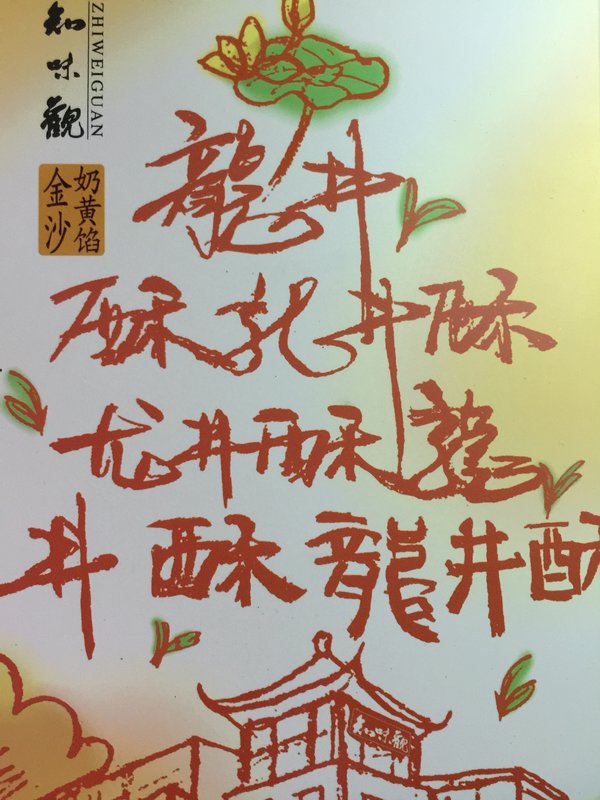 知味觀
ZHIWEIGUAN
金沙
奶黄馅
龍井
酥龙井酥
龙井酥龍
井酥龍井酥
知味觀